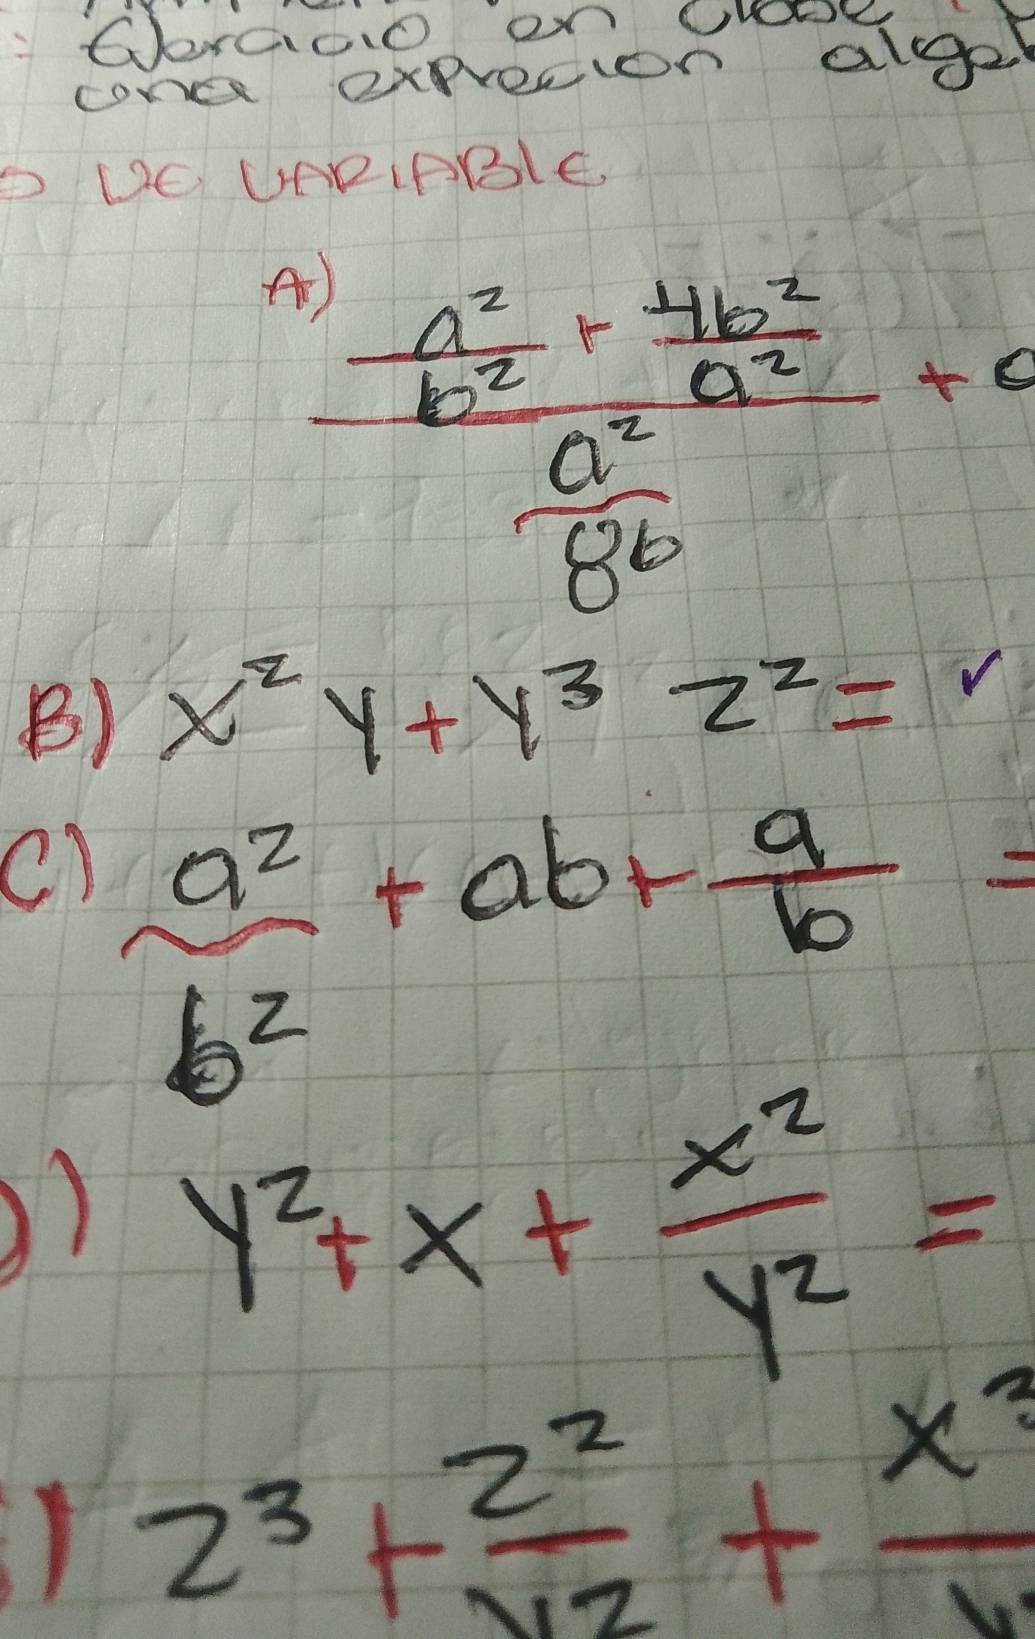 : Ejercicio en clase :
una exprecion algeb
DE VARIABLE
A) a²/b² + 4b²/a² +
a²/8b
B) x² y + y³ z² = ✓
C) a²/b² + ab + a/b =
) y² + x + x²/y² =
) z³ + z²/y² + x